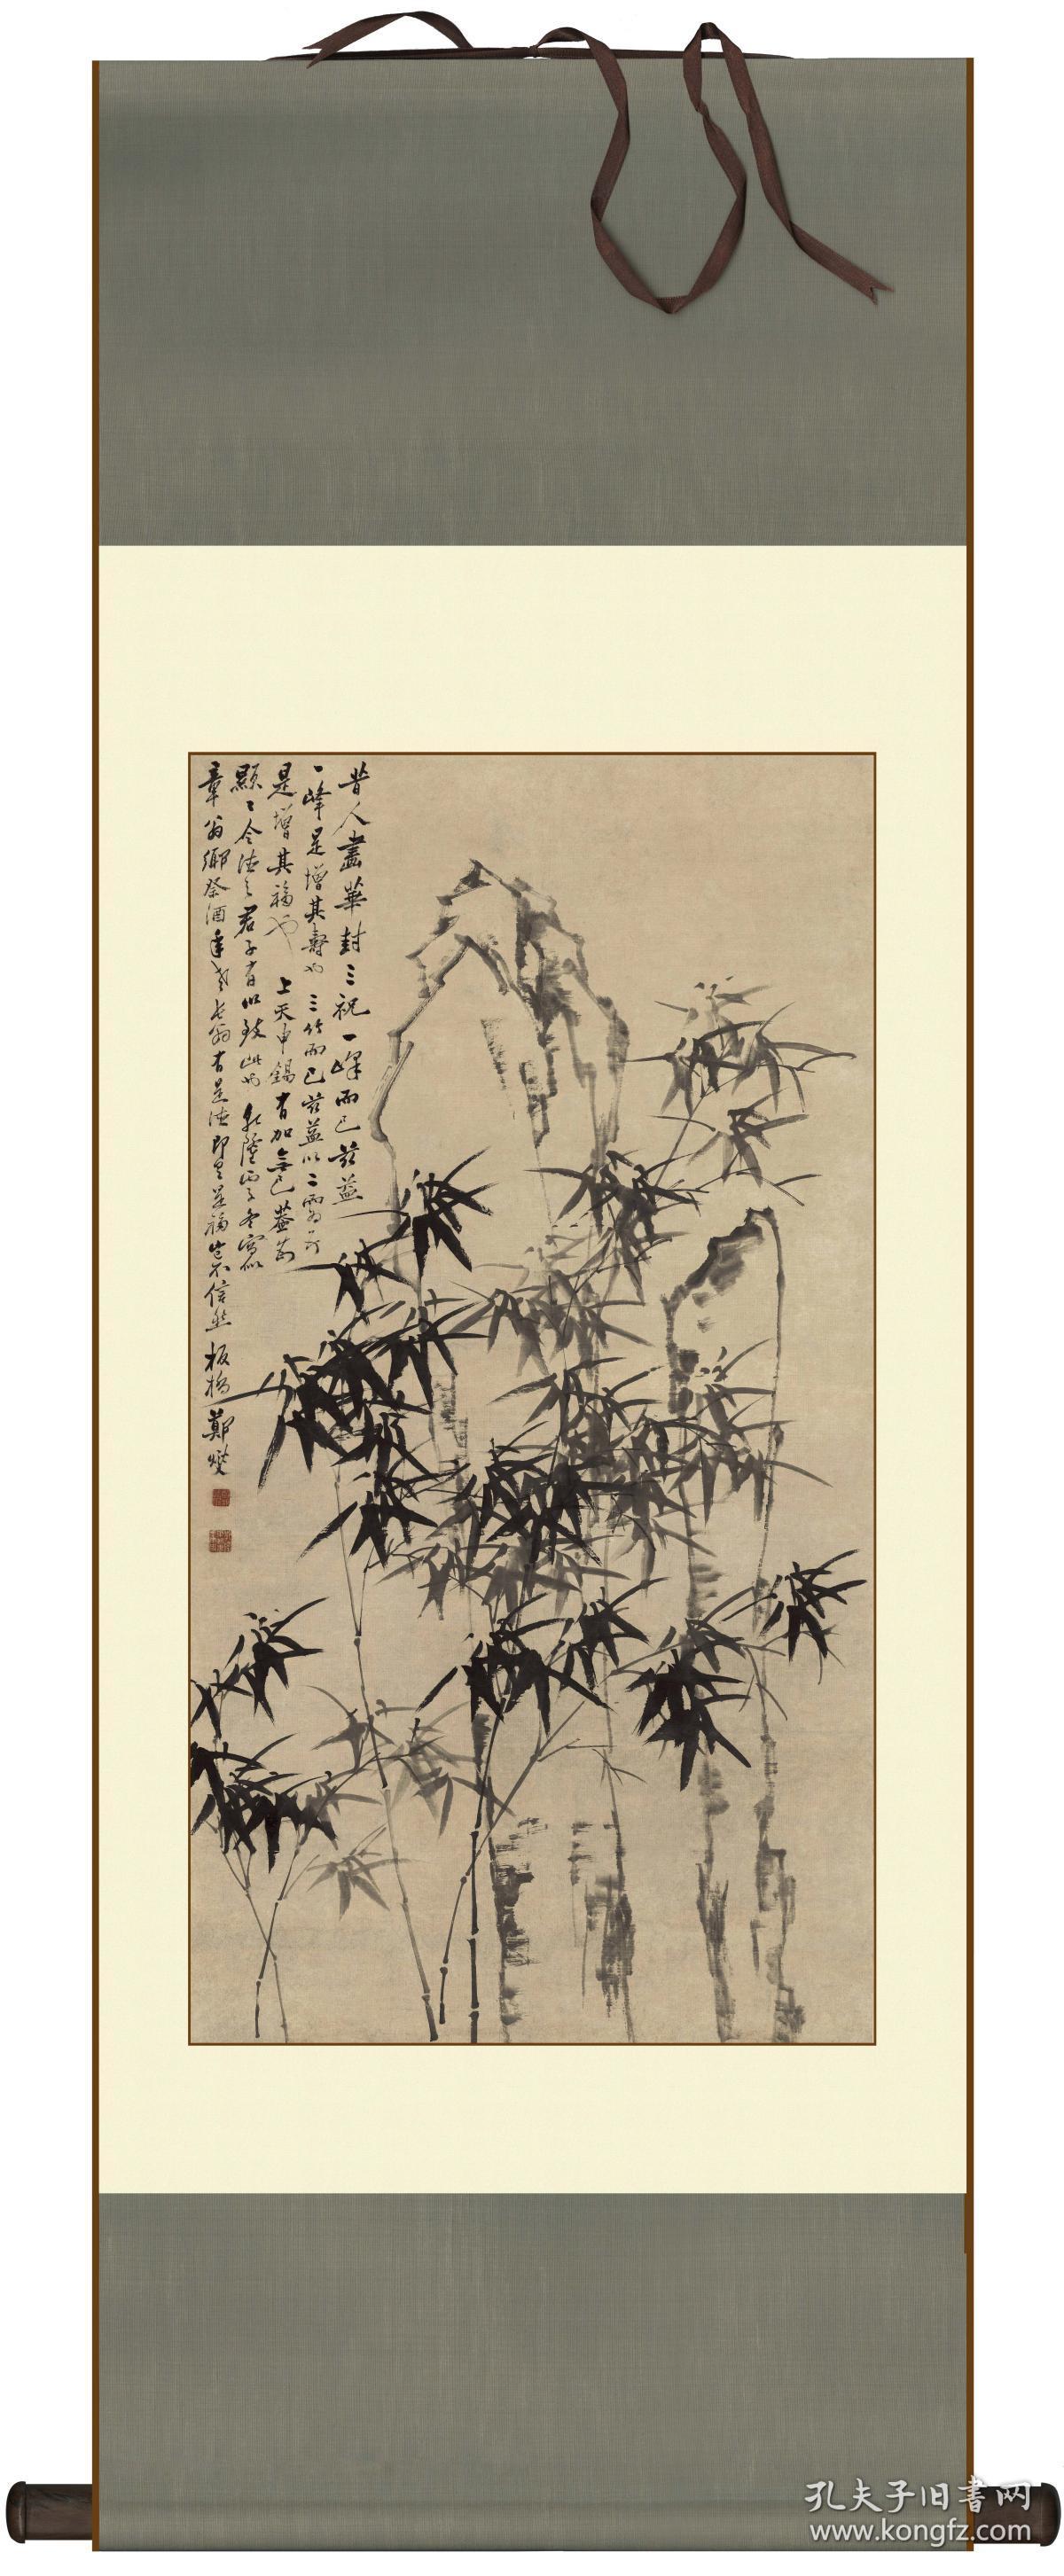 昔人畫華封三祝一峰而已茲益
一峰是增其壽也三竹而已茲益以二
是增其福也上天申錫有加無已蓋
顯顯令德之君子有以致此也乾隆丙子冬寫似
章翁鄉祭酒年老長翁有是德即有是福豈不信然板橋鄭燮
孔夫子旧書网
www.kongfz.com